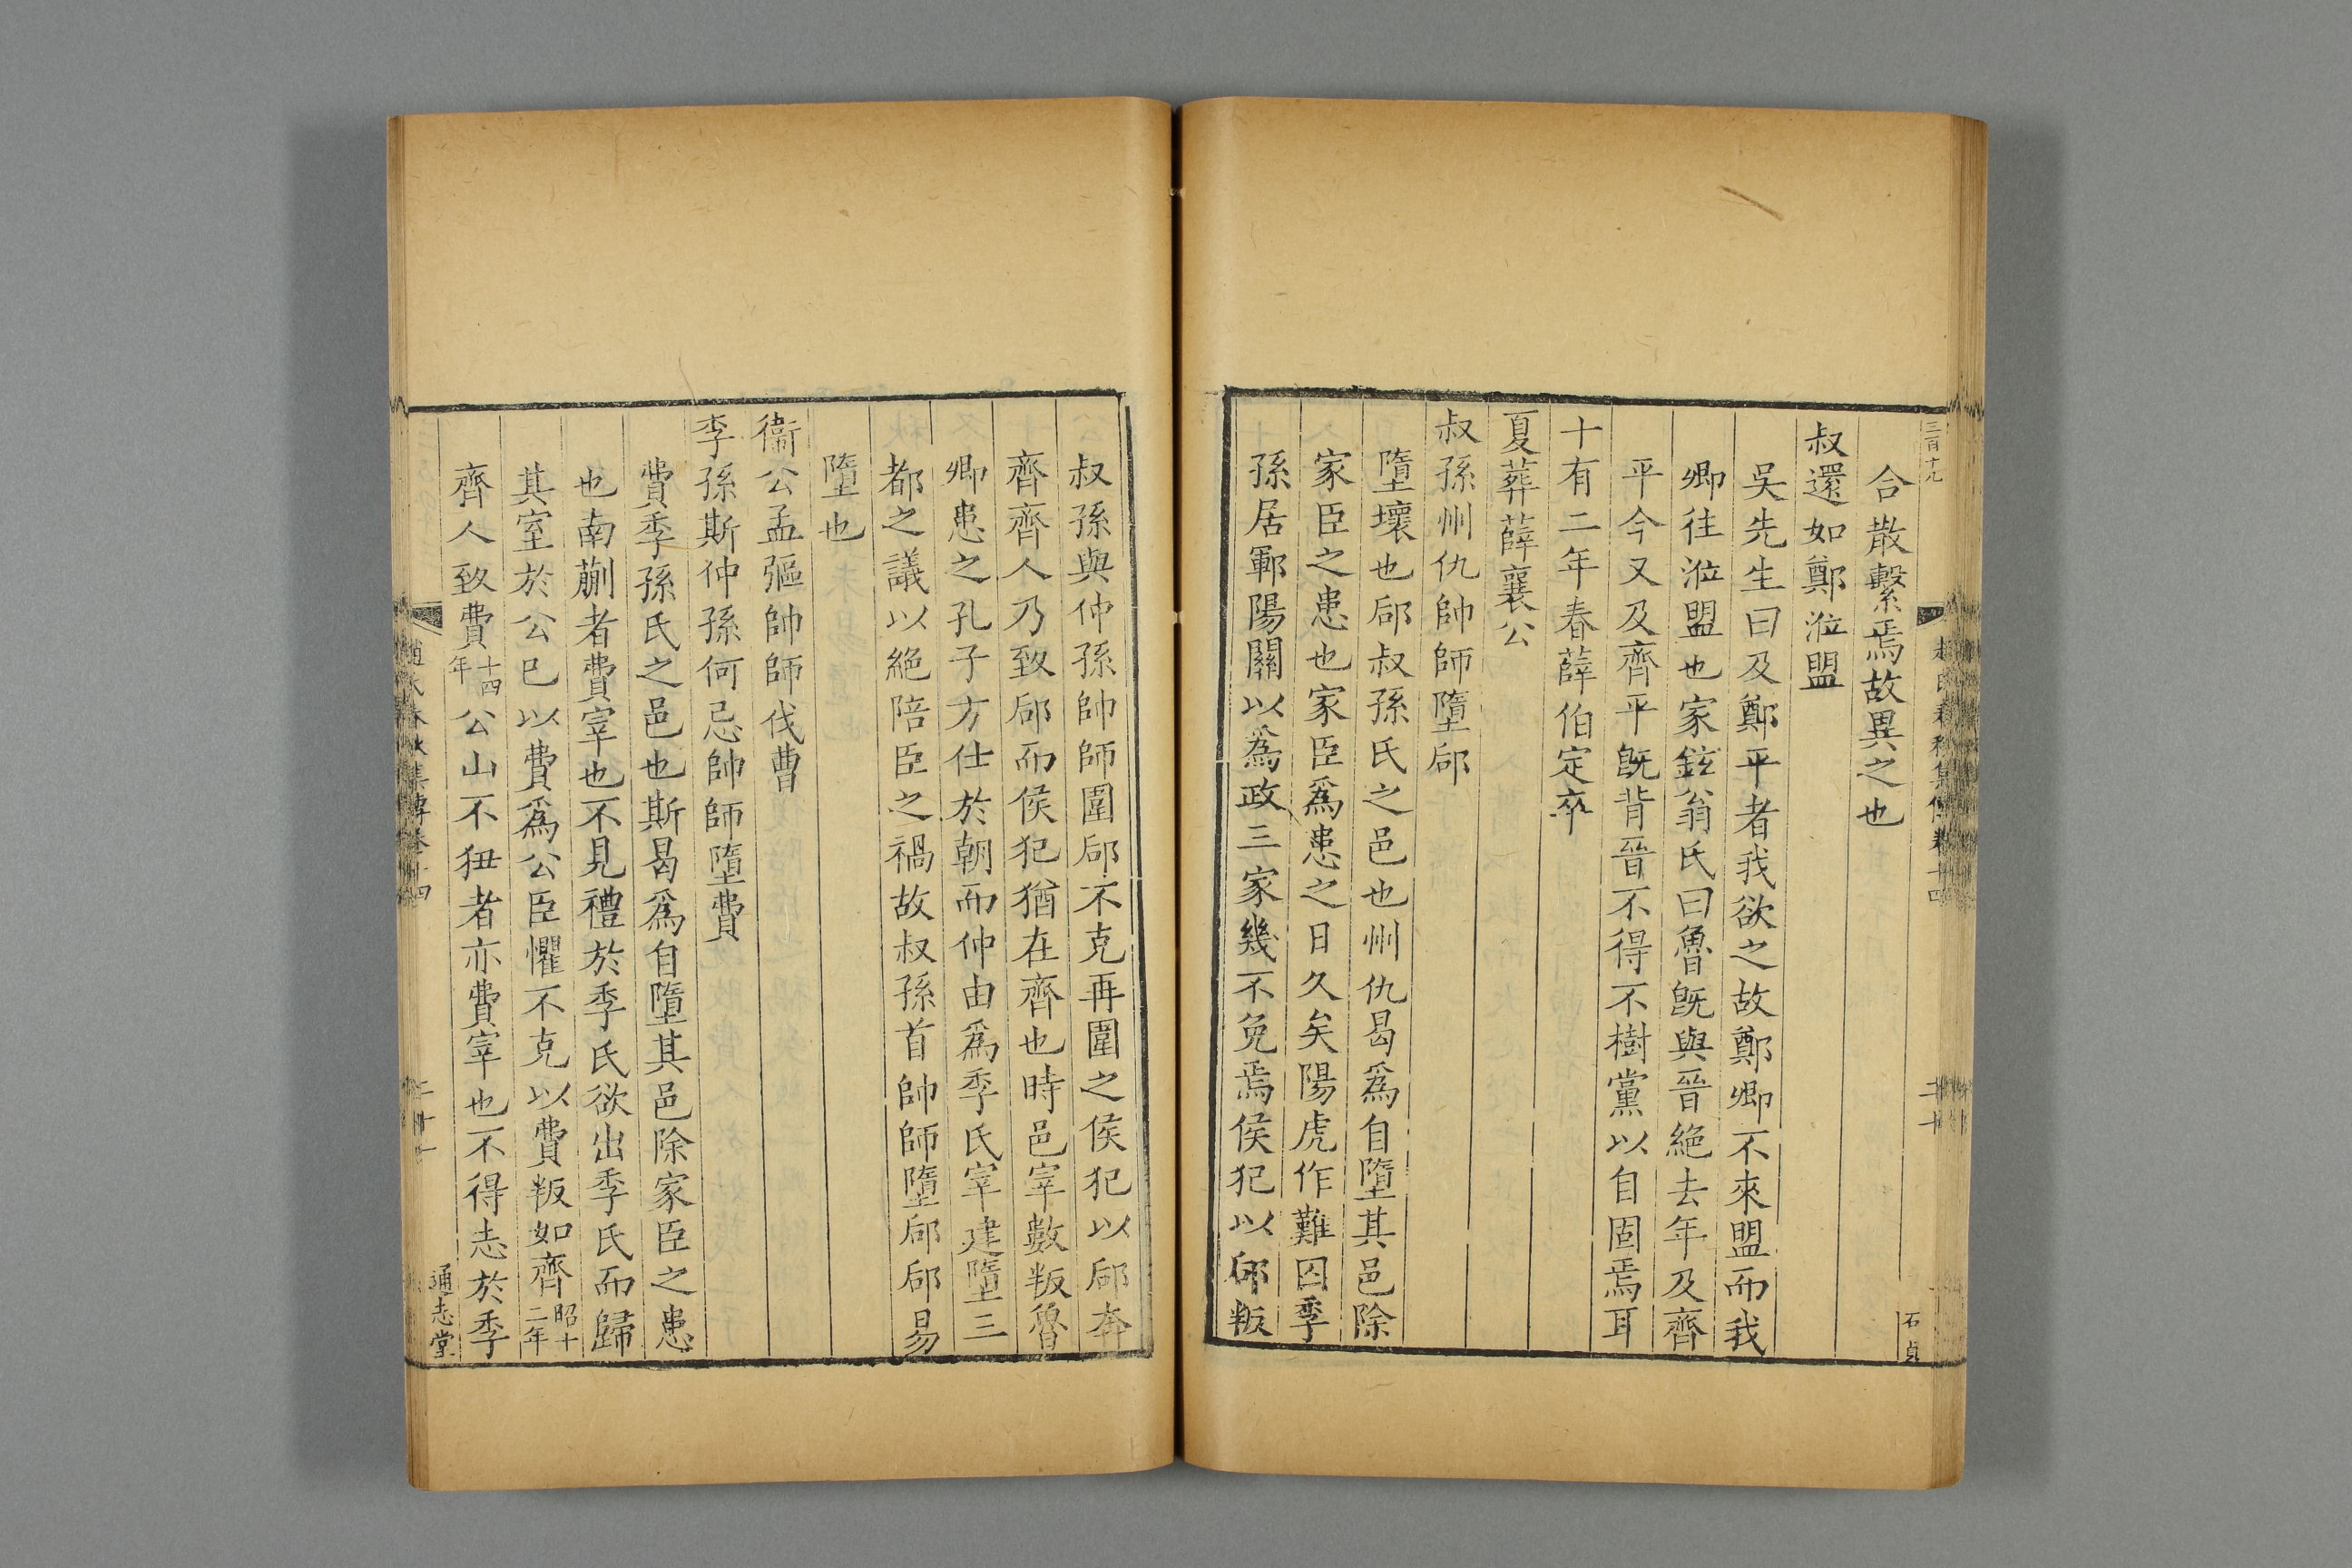 三百十九
合散繫焉故異之也
叔還如鄭涖盟
吳先生曰及鄭平者我欲之故鄭卿不來盟而我
卿往涖盟也家鉉翁氏曰魯旣與晉絕去年及齊
平今又及齊平平旣背晉不得不樹黨以自固焉耳
十有二年春薛伯定卒
夏葬薛襄公
叔孫州仇帥師墮郈
墮壞也郈叔孫氏之邑也州仇曷爲自墮其邑除
家臣之患也家臣爲患之日久矣陽虎作難囚季
孫居鄆陽關以爲政三家幾不免焉侯犯以郈叛
石貞
叔孫與仲孫帥師圍郈不克再圍之侯犯以郈奔
齊齊人乃致郈而侯犯猶在齊也時邑宰數叛魯
卿患之孔子方仕於朝而仲由爲季氏宰建墮三
都之議以絕陪臣之禍故叔孫首帥師墮郈郈易
墮也
衞公孟彄帥師伐曹
季孫斯仲孫何忌帥師墮費
費季孫氏之邑也斯曷爲自墮其邑除家臣之患
也南蒯者費宰也不見禮於季氏欲出季氏而歸
其室於公已以費爲公臣懼不克以費叛如齊昭十二年
齊人致費十四年公山不狃者亦費宰也不得志於季
春秋集傳卷十四
通志堂